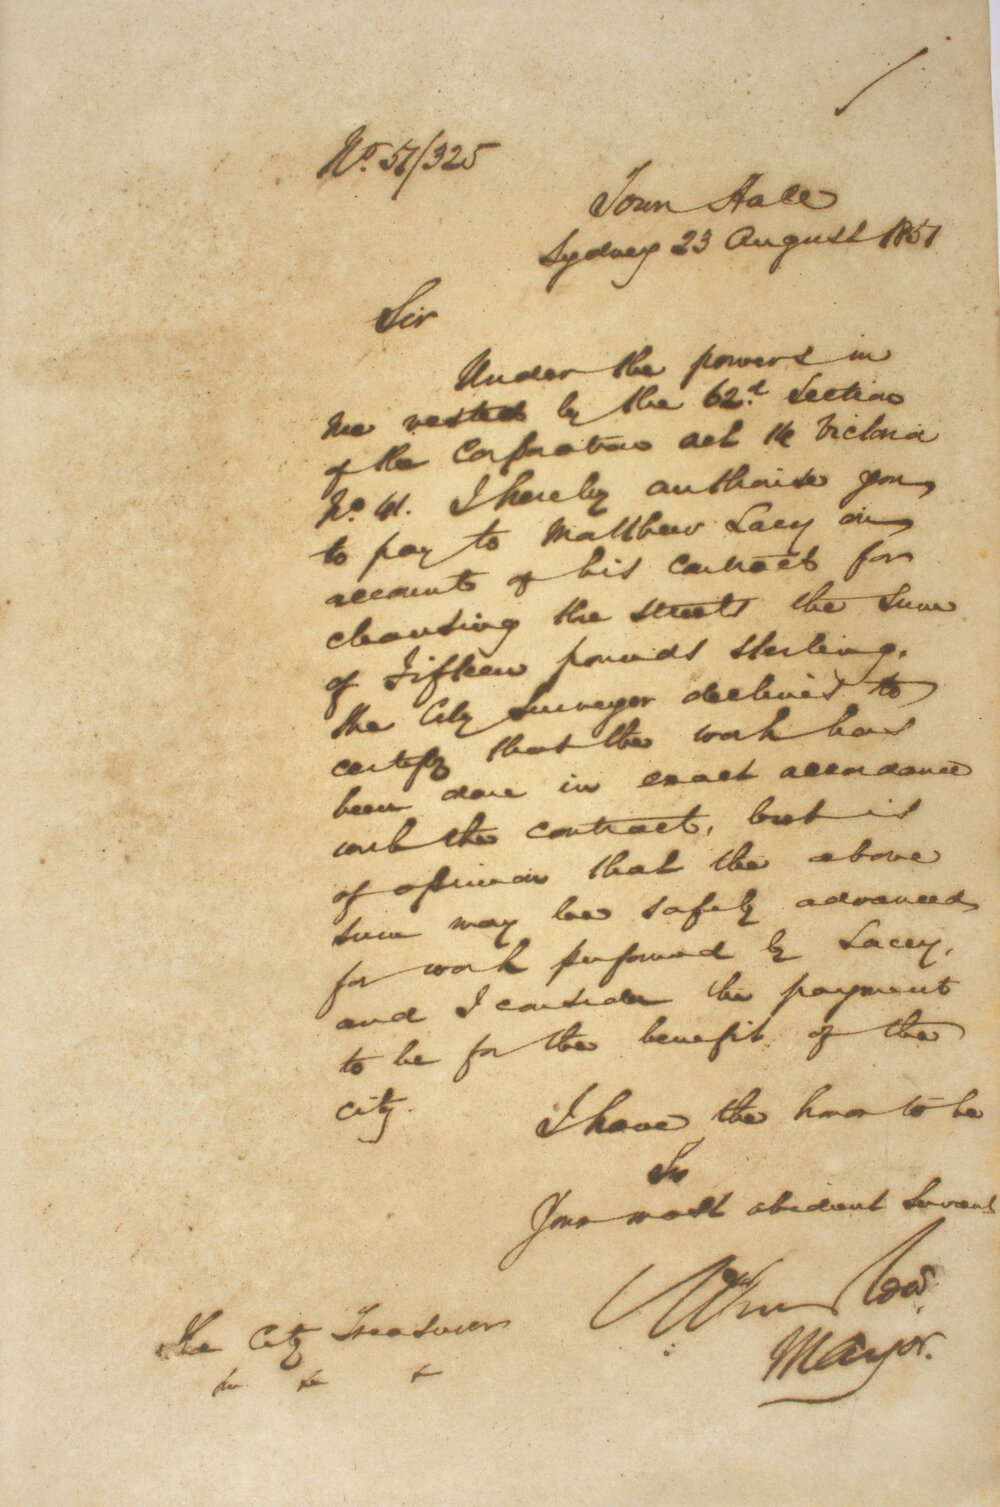 No. 51/325
Town Hall
Sydney 23 August 1851
Sir
Under the powers in
me vested by the 62d Section
of the Corporation act 14 Victoria
No. 41. I hereby authorise you
to pay to Matthew Lacy on
account of his contract for
cleansing the streets the sum
of Fifteen pounds sterling.
the City Surveyor declines to
certify that the work has
been done in exact accordance
with the contract, but is
of opinion that the above
sum may be safely advanced
for work performed by Lacey,
and I consider the payment
to be for the benefit of the
city.
I have the honor to be
Sir
Your most obedient Servant
Mayor.
The City Treasurer